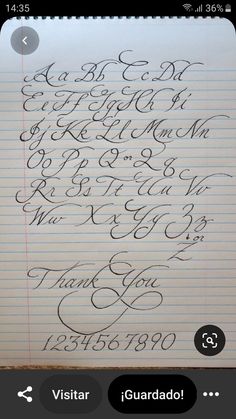 14:35 36%
Aa Bb Cc Dd
Ee Ff Gg Hh Ii
Jj Kk Ll Mm Nn
Oo Pp Q or Qq
Rr Ss Tt Uu Vv
Ww Xx Yy Zz
or
Z
Thank You
1234567890
Visitar ¡Guardado!